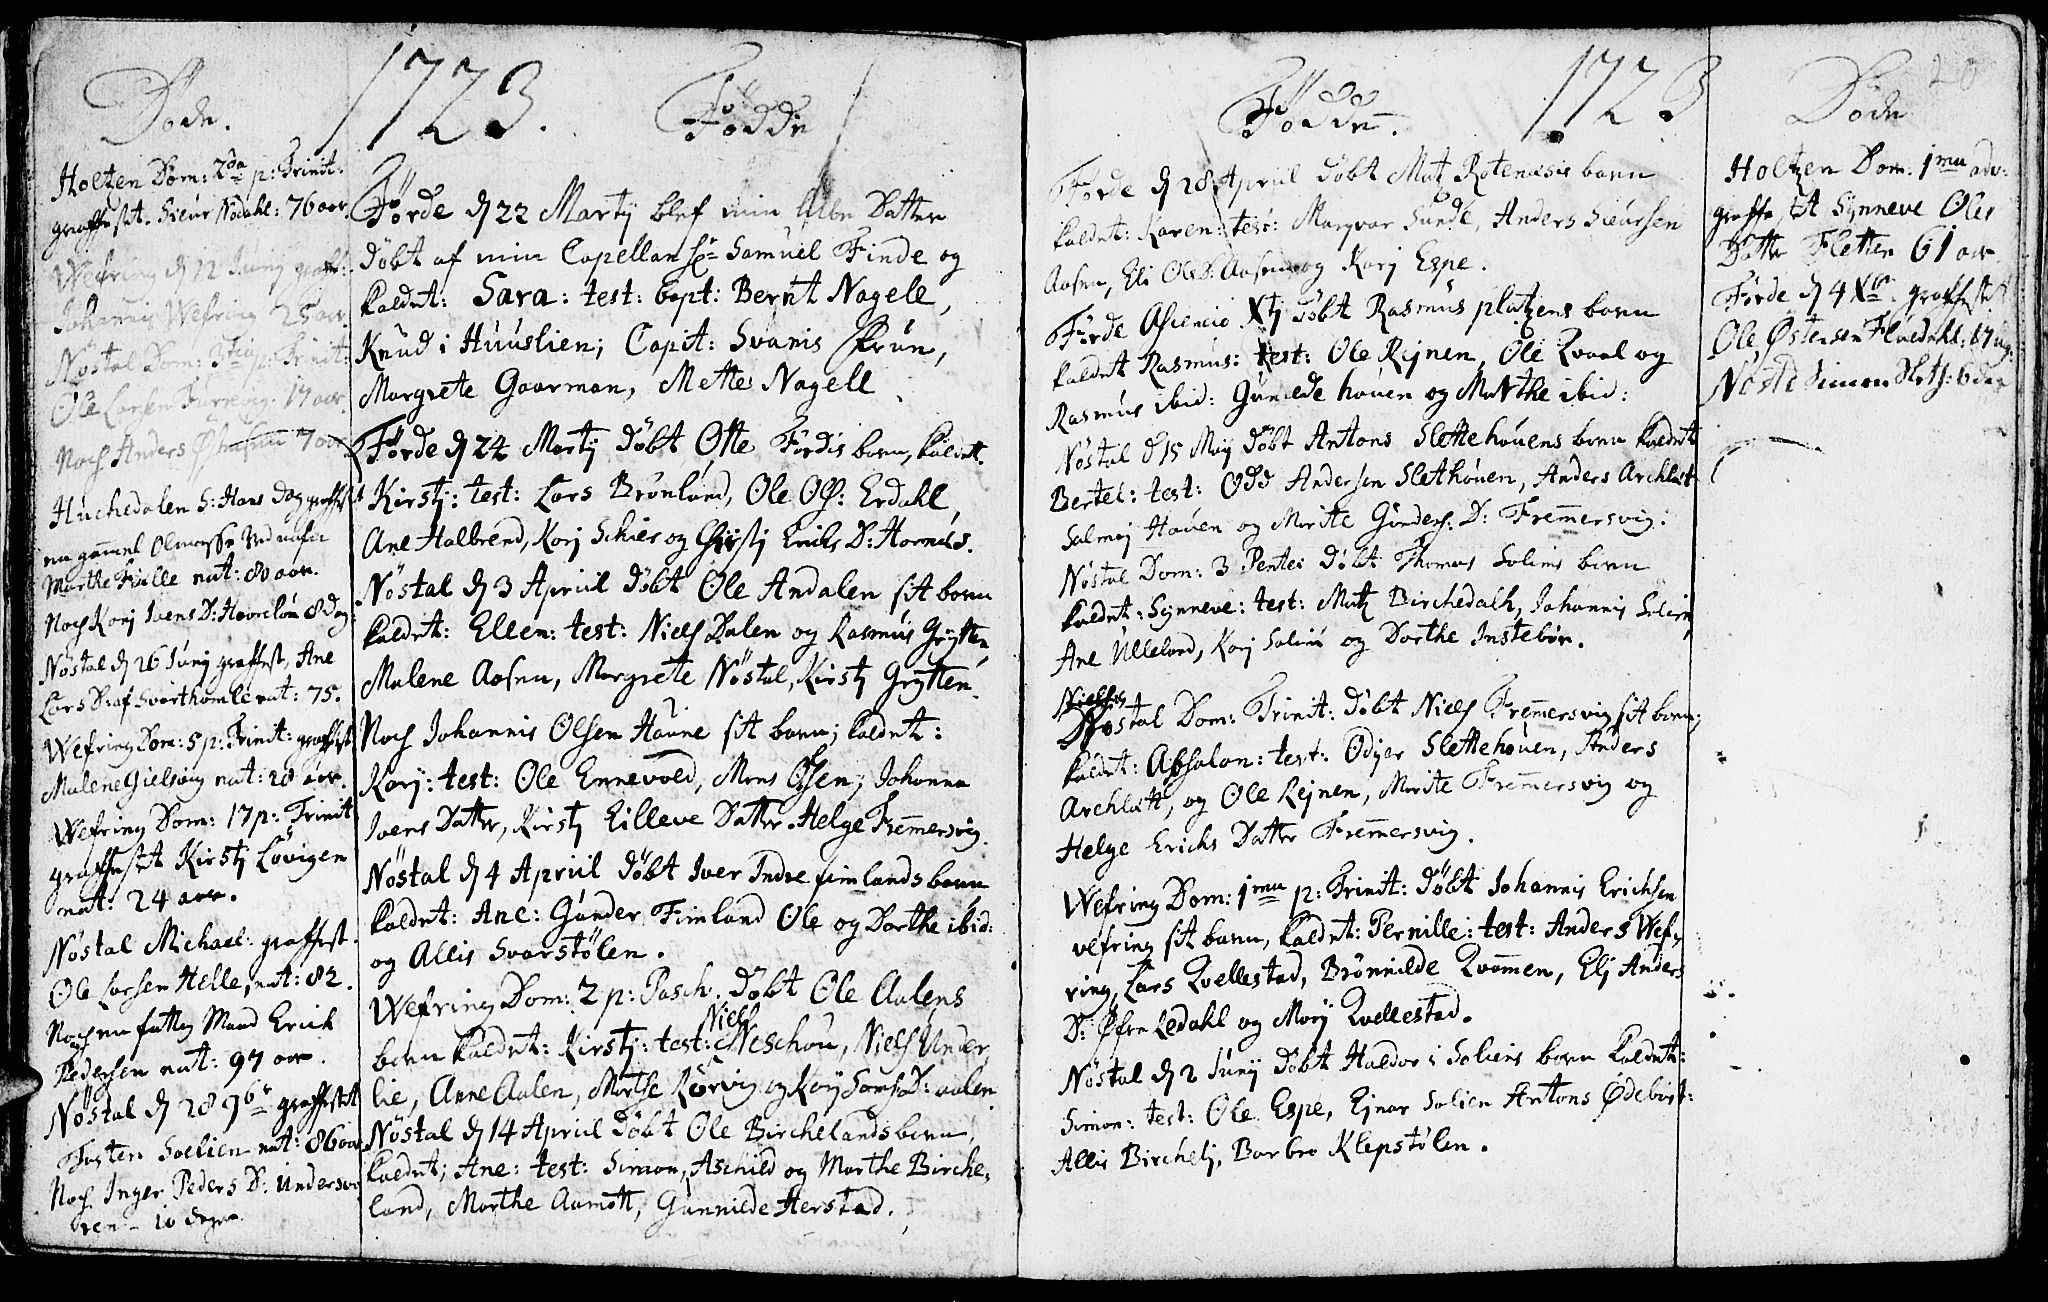 Døde.
Holtzen Dom: 2da p: Trinit:
graffest. Siur Nødahl: 76 aar.
Wefring d 12 Junij graff:
Johannis Wefring 25 aar.
Nøstal Dom: 3tia p: Trinit:
Ole Larsen Furrevig. 17 aar.
Noch Anders 7 aar
Huchedalen S: Hans dag graffest
en gammel Olmosse
Marthe Fielle nat: 80 aar.
Noch Korj Ivers D: 8 dag:
Nøstal d 26 Junij graffest, Ane
Lars D: af Svorthomle nat: 75.
Wefring Dom: 5 p: Trinit: graffest
Malene Gielsvig nat: 28 aar.
Wefring Dom: 17 p: Trinit
graffest Kirstj Løvigen
nat: 24 aar.
Nøstal Michael: graffest.
Ole Larsen Helle, nat: 82.
Noch en fattig Mand Erick
Pedersen nat: 97 aar.
Nøstal d 28 9br graffestet
Tosten Soelien nat: 86 aar
Noch Inger Peders D:
10 dage
1723. Fødde
Førde d 22 Martij blef min Datter
døbt af min Capellan Hr Samuel Finde og
kaldet: Sara: test: Capt: Bernt Nagell,
Knud i Huuslien; Capit: Svanis Frue,
Margrete Gaarman, Mette Nagell
Førde d 24 Martij døbt Otte Førdis barn, kaldet
Kirstj: test: Lars Brønlund, Ole Ols: Erdahl,
Ane Halbrend, Korj Schier og Chirstj Erichs D: Hornæs.
Nøstal d 3 Apriil døbt Ole Andalen sit barn
kaldet: Ellen: test: Niels Dalen og Rasmus Grytten,
Malene Aasen, Margrete Nøstal, Kirstj Grytten.
Noch Johannis Olsen Haune sit barn; kaldet:
Korj: test: Ole Ennevold, Mons Osen; Johanna
Ivers Datter, Kirstj Eilleve Datter. Helge Fremmersvig.
Nøstal d 4 Apriil døbt Iver Indre fimlands barn
kaldet: Ane: Gunder Fimland Ole og Dorthe ibid:
og Allis Svorstølen.
Wefring Dom: 2 p: Pasch: døbt Ole Aalens
Niels
barn kaldet: Kirstj: test: Neschou, Niels Under
lie, Anne Aalen, Marthe Rørvig og Korj D: aalen
Nøstal d 14 Apriil døbt Ole Birchelands barn,
kaldet; Ane: test: Simon, Aschild og Marthe Birche,
land, Marthe Aamott, Gunnilde Herstad.
Fødde. 1723
Førde d 28 Apriil døbt Matz Rotenæsis barn
kaldet: Karen: test: Maqvar Sunde, Anders Siursen
Aasen, Eli Ols D: Aasen og Korj Espe.
Førde Ascencio Xtj døbt Rasmus platzens barn
kaldet Rasmus: test: Ole Rejnen, Ole Qvaal og
Rasmus ibid: Gunilde houen og Marthe ibid:
Nøstal d 15 Maij døbt Antons Slettehouens barn kaldet
Bertel: test: Odd Andersen Slethouen, Anders Archlæt
Salmoj Houen og Marite Gunders: D: Fremmersvig:
Nøstal Dom: 3 Pentec døbt Thomas Soliens barn
kaldet: Synneve: test: Matz Birchedalh, Johannis Solien,
Ane Ulleland, Korj Solien og Dorthe Instebøe.
Nøstal Dom: Trinit: døbt Niels Fremmersvig sit barn,
kaldet: Absalon: test: Odger Slettehouen, Anders
Archlætt, og Ole Rejnen, Marite Fremmersvig og
Helge Erichs Datter Fremmersvig.
Wefring Dom: 1ma p: Trinit: døbt Johannis Erichsen
vefring sit barn, kaldet: Pernille: test: Anders Wef,
ring, Lars Qvellestad, Brønnilde Qvommen, Elj Anders
D: Øfre Ledahl og Morj Qvellestad.
Nøstal d 2 Junij døbt Haldor i Soliens barn kaldet:
Simon: test: Ole Espe, Ejnar Solien Antons Ødebøst:
Allis Birchetj, Barbro Klepstølen.
Døde
20
Holtzen Dom: 1ma adv:
graffestet Synneve Oles
Datter Fletten 61 aar
Førde d 4 Xbr. graffestet
Ole Østensen 17 ug:
Nøste Simon Sleth: 6 dag